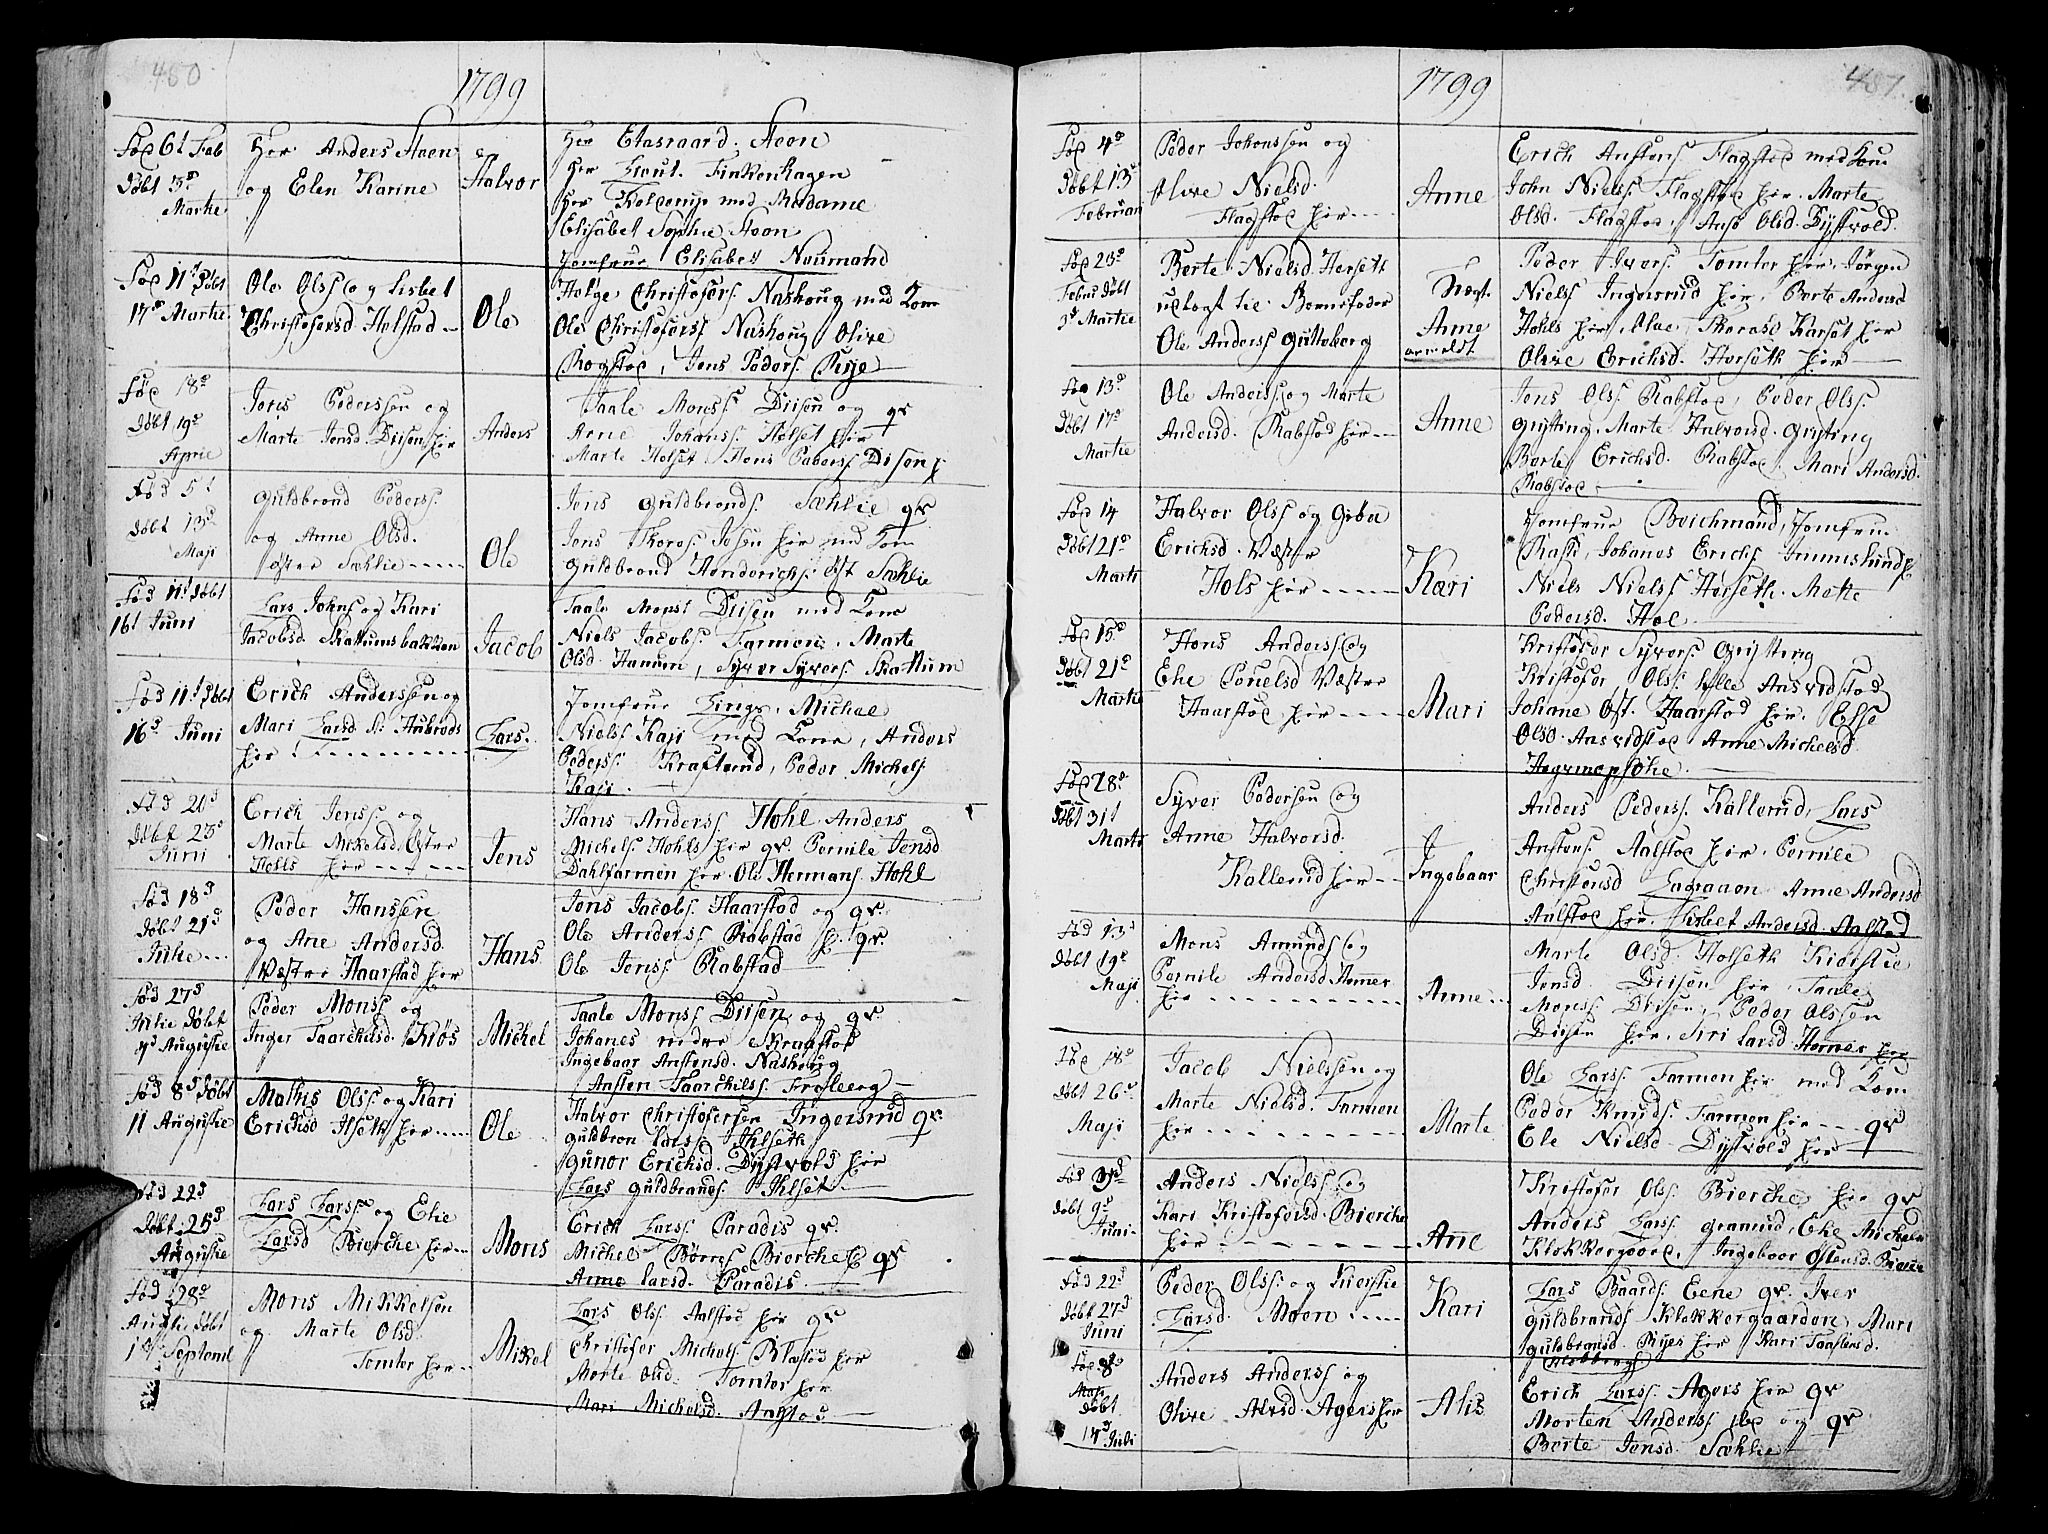 480
1799
Fød 6t Feb
Døbt 3d
Martie
Her Anders Steen
og Elen Karine
Halvor
Her Etasraard Steen
Her Lieut. Finkenhagen
Her med Madame
Elisabet Sophie Steen
Jomfrue Elisabet Neumand
Fød 11t Døbt
17d Martie
Ole Olss og Lisbet
Christofersd Helstad
Ole
Helge Christofers. Nashoug med Kone
Ole Christofers Nashoug Olive
Rogstad, Jens Peders. Rye
Fød 18d
Døbt 19d
Aprie
Jens Pederssen og
Marte Jensd. Diisen her
Anders
Taale Monss Diisen og qv
Arne Johanss. Holset her
Marte Holset, Hans Peders Disen h
Fød 5t
Døbt 13d
Maji
Guldbrand Peders.
og Anne Olsd.
Østre Sæhlie
Ole
Jens Guldbrands. Sæhlie qv
Jens Thores. her med Kone
Guldbrand Henderichs. Øst Sæhlie
Fød 11t Døbt
16t Juni
Lars Johns og Kari
Jacobsd. Skattumsbakken
Jacob
Taale Mons Diisen med Kone
Niels Jacobs. Farmen. Marte
Olsd. Hanum, Syver Syvers. Skattum
Fød 11t Døbt
16d Juni
Erich Anderssen og
Mari Larsd.
her
Lars
Jomfrue Lings, Michel
Niels Kaji med Kone, Anders
Peders. Kraflund, Peder Michels
Kaji
Fød 21d
Døbt 23d
Juni
Erich Jenss. og
Marte Mikelsd. Øster
Hohls her
Jens
Hans Anderss. Hohl Anders
Michels Hohls her qv Pernile Jensd
Dahlfarmen her. Ole Hermans Hohl
Fød 18d
Døbt 21d
Julie
Peder Hanssen
og Ane Andersd.
Væstre Haarstad her
Hans
Jens Jacobs. Haarstad og qv.
Ole Anders Rabstad h. qv.
Ole Jenss Rabstad
Fød 27d
Julie Døbt
4d Auguste
Peder Monss og
Inger Taarchildsd. Kiøs
Michel
Taale Monss Diisen og qv.
Johanes nedre Skraastad
Ingebaar Anstensd. Nashoug
Ansten Taarchilss. Frosberg
Fød 8d Døbt
11 Auguste
Mathis Olss og Kari
Erichsd Ihlseth her
Ole
Halvor Christofersen Ingersrud qv.
Guldbran Larss Ihlseth
Gunor Erichsd. Dystvold her
Lars Guldbrands Ihlset
Fød 22d
Døbt 25d
Auguste
Lars Larss. og Ehe
Larsd Bierche her
Mons
Erich Larss. Paradis qv.
Michel Børres Bierche h qv
Anne Larsd. Paradis
Fød 28d
Augste Døbt
1d Septembr
Mons Mikkelsen
og Marte Olsd.
Tomter her
Mikel
Lars Olss. Aalstad her qv
Christofer Michels. Blæstad her
Marte Olsd. Tomter her
Mari Michelsd. Aalstad
487.
1799
Fød 4d
Døbt 13d
Februari
Peder Johanssen og
Olive Nielsd.
Flagstad her
Anne
Erich Anstens. Flagstad med Kone
John Niels. Flagstad her. Marte
Olsd. Flagstad. Aase Olsd. Dystvold.
Fød 23d
Febru Døbt
3d Martie
Berte Nielsd. Horseth
udlagt til Barnefader
Ole Anders Gutteberg
Uægt.
Anne
anmeldt
Peder Ivers. Tomter her. Jørgen
Niels Ingersrud her. Berte Andersd
Hohls her, Karset her
Olive Erichsd. Horseth her
Fød 13d
Døbt 17d
Martie
Ole Anderss og Marte
Andersd. Rabstad her
Anne
Jens Olss. Rabstad, Peder Olss.
Grytting, Marte Halvorsd. Grytting
Berte Erichsd. Rabstad. Mari Andersd.
Rabstad
Fød 14
Døbt 21d
Marti
Halvor Olss og Gubie
Erichsd. Væster
Hols her
Kari
Jomfrue Boichmand, Jomfru
Rasd, Johanes Erichs Immeslund h
Niels Niels Horseth. Mette
Pedersd. Hol
Fød 15d
Døbt 21d
Martie
Hans Anderss og
Ehe Poulsd Væster
Haarstad her
Mari
Kristofer Syvers Grytting
Kristofer Olss. lille Ansvidstad
Johane Øst. Haarstad her. Else
Olsd. Ansvidstad. Anne Michelsd.
Fød 28d
Døbt 31t
Marti
Syver Pedersen og
Anne Halvorsd.
Kallerud her
Ingebaar
Anders Peders. Kallerud, Lars
Anstens. Aalstad her. Pernile
Christensd Anne Andersd
Aalstad her. Lisbet Andersd. Aalstad
Fød 13d
Døbt 19d
Maji
Mons Amunds og
Pernile Andersd. Hemer
her
Anne
Marte Olsd. Holseth Kierstie
Jensd. Diisen her. Taale
Monss. Diisen, Peder Olssen
Diisen her. Siri Larsd. Hemer her
Fød 18d
Døbt 26d
Maji
Jacob Nielssen og
Marte Nielsd. Farmen
her
Marte
Ole Larss. Farmen her med Kone
Peder Knuds. Farmen her qv
Ele Nielsd Dystvold her
Fød 3d
Døbt 9d
Juni
Anders Nielss. og
Kari Kristofersd. Bierche
her
Ane
Kristofer Olss. Bierche her qv
Anders Larss. Gramrud, Ehe Michelsd
Klokkergaard, Ingebaar Østensd. Bierche
Fød 22d
Døbt 27d
Juni
Peder Olss. og Kierstie
Larsd. Moen
Kari
Lars Baards. Eene qv. Iver
Guldbrands Klokkergaarden, Mari
Guldbransd. Ryen her Kari Taastensd.
Klobberg
Fød 8d
Maji
Døbt
14d Juli
Anders Anderss og
Olive Alvsd. Agers her
Alis
Erich Larss. Agers her qv
Morten Anders. ibd og qv
Berte Jensd. Sæhlie